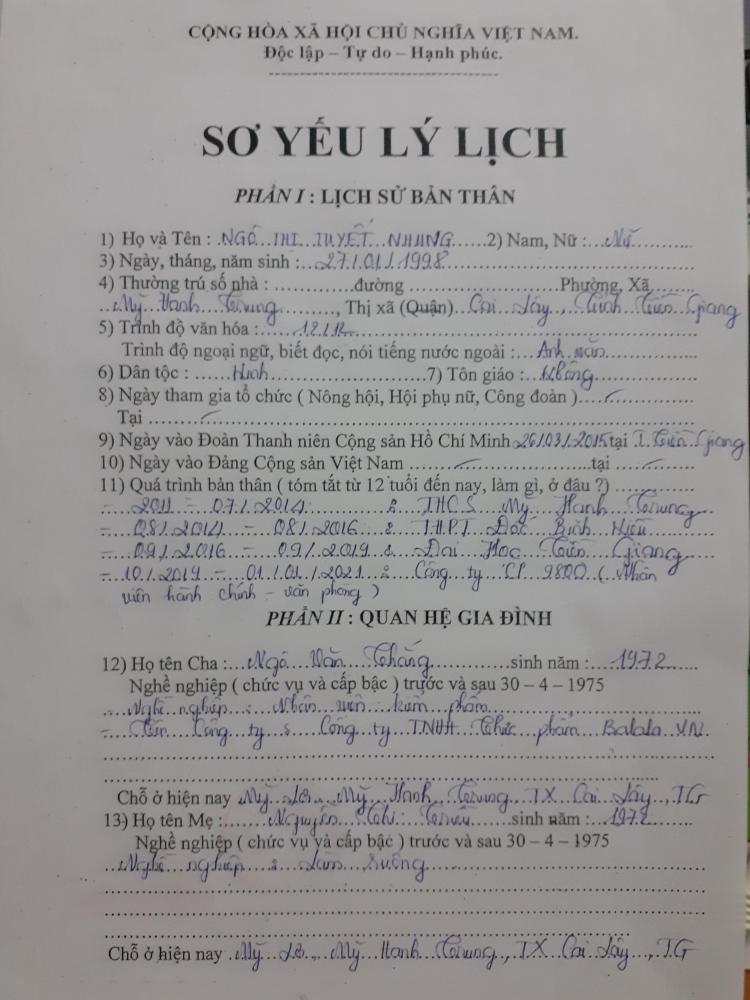 CỘNG HÒA XÃ HỘI CHỦ NGHĨA VIỆT NAM.
Độc lập – Tự do – Hạnh phúc.
SƠ YẾU LÝ LỊCH
PHẦN I : LỊCH SỬ BẢN THÂN
1) Họ và Tên : NGÔ THỊ TUYẾT NHUNG 2) Nam, Nữ : Nữ
3) Ngày, tháng, năm sinh : 27/01/1998
4) Thường trú số nhà : đường Phường, Xã
Mỹ Hạnh Trung, Thị xã (Quận) Cai Lậy, Tỉnh Tiền Giang
5) Trình độ văn hóa : 12/12
Trình độ ngoại ngữ, biết đọc, nói tiếng nước ngoài : Anh văn
6) Dân tộc : Kinh 7) Tôn giáo : Không
8) Ngày tham gia tổ chức ( Nông hội, Hội phụ nữ, Công đoàn )
Tại
9) Ngày vào Đoàn Thanh niên Cộng sản Hồ Chí Minh 26/03/2015 tại T. Tiền Giang
10) Ngày vào Đảng Cộng sản Việt Nam tại
11) Quá trình bản thân ( tóm tắt từ 12 tuổi đến nay, làm gì, ở đâu ?)
- 2011 - 07/2014 : THCS Mỹ Hạnh Trung
- 08/2014 - 08/2016 : THPT Đốc Binh Kiều
- 09/2016 - 09/2019 : Đại Học Tiền Giang
- 10/2019 - 01/01/2021 : Công ty CP 9800 ( Nhân
viên hành chính - văn phòng )
PHẦN II : QUAN HỆ GIA ĐÌNH
12) Họ tên Cha : Ngô Văn Thắng sinh năm : 1972
Nghề nghiệp ( chức vụ và cấp bậc ) trước và sau 30 – 4 – 1975
- Nghề nghiệp : Nhân viên kiểm phẩm
- Tên Công ty : Công ty TNHH Thực phẩm Balala VN.
Chỗ ở hiện nay Mỹ Lợi, Mỹ Hạnh Trung, TX Cai Lậy, TG
13) Họ tên Mẹ : Nguyễn Thị sinh năm : 1972
Nghề nghiệp ( chức vụ và cấp bậc ) trước và sau 30 – 4 – 1975
- Nghề nghiệp : Làm ruộng
Chỗ ở hiện nay Mỹ Lợi, Mỹ Hạnh Trung, TX Cai Lậy, TG